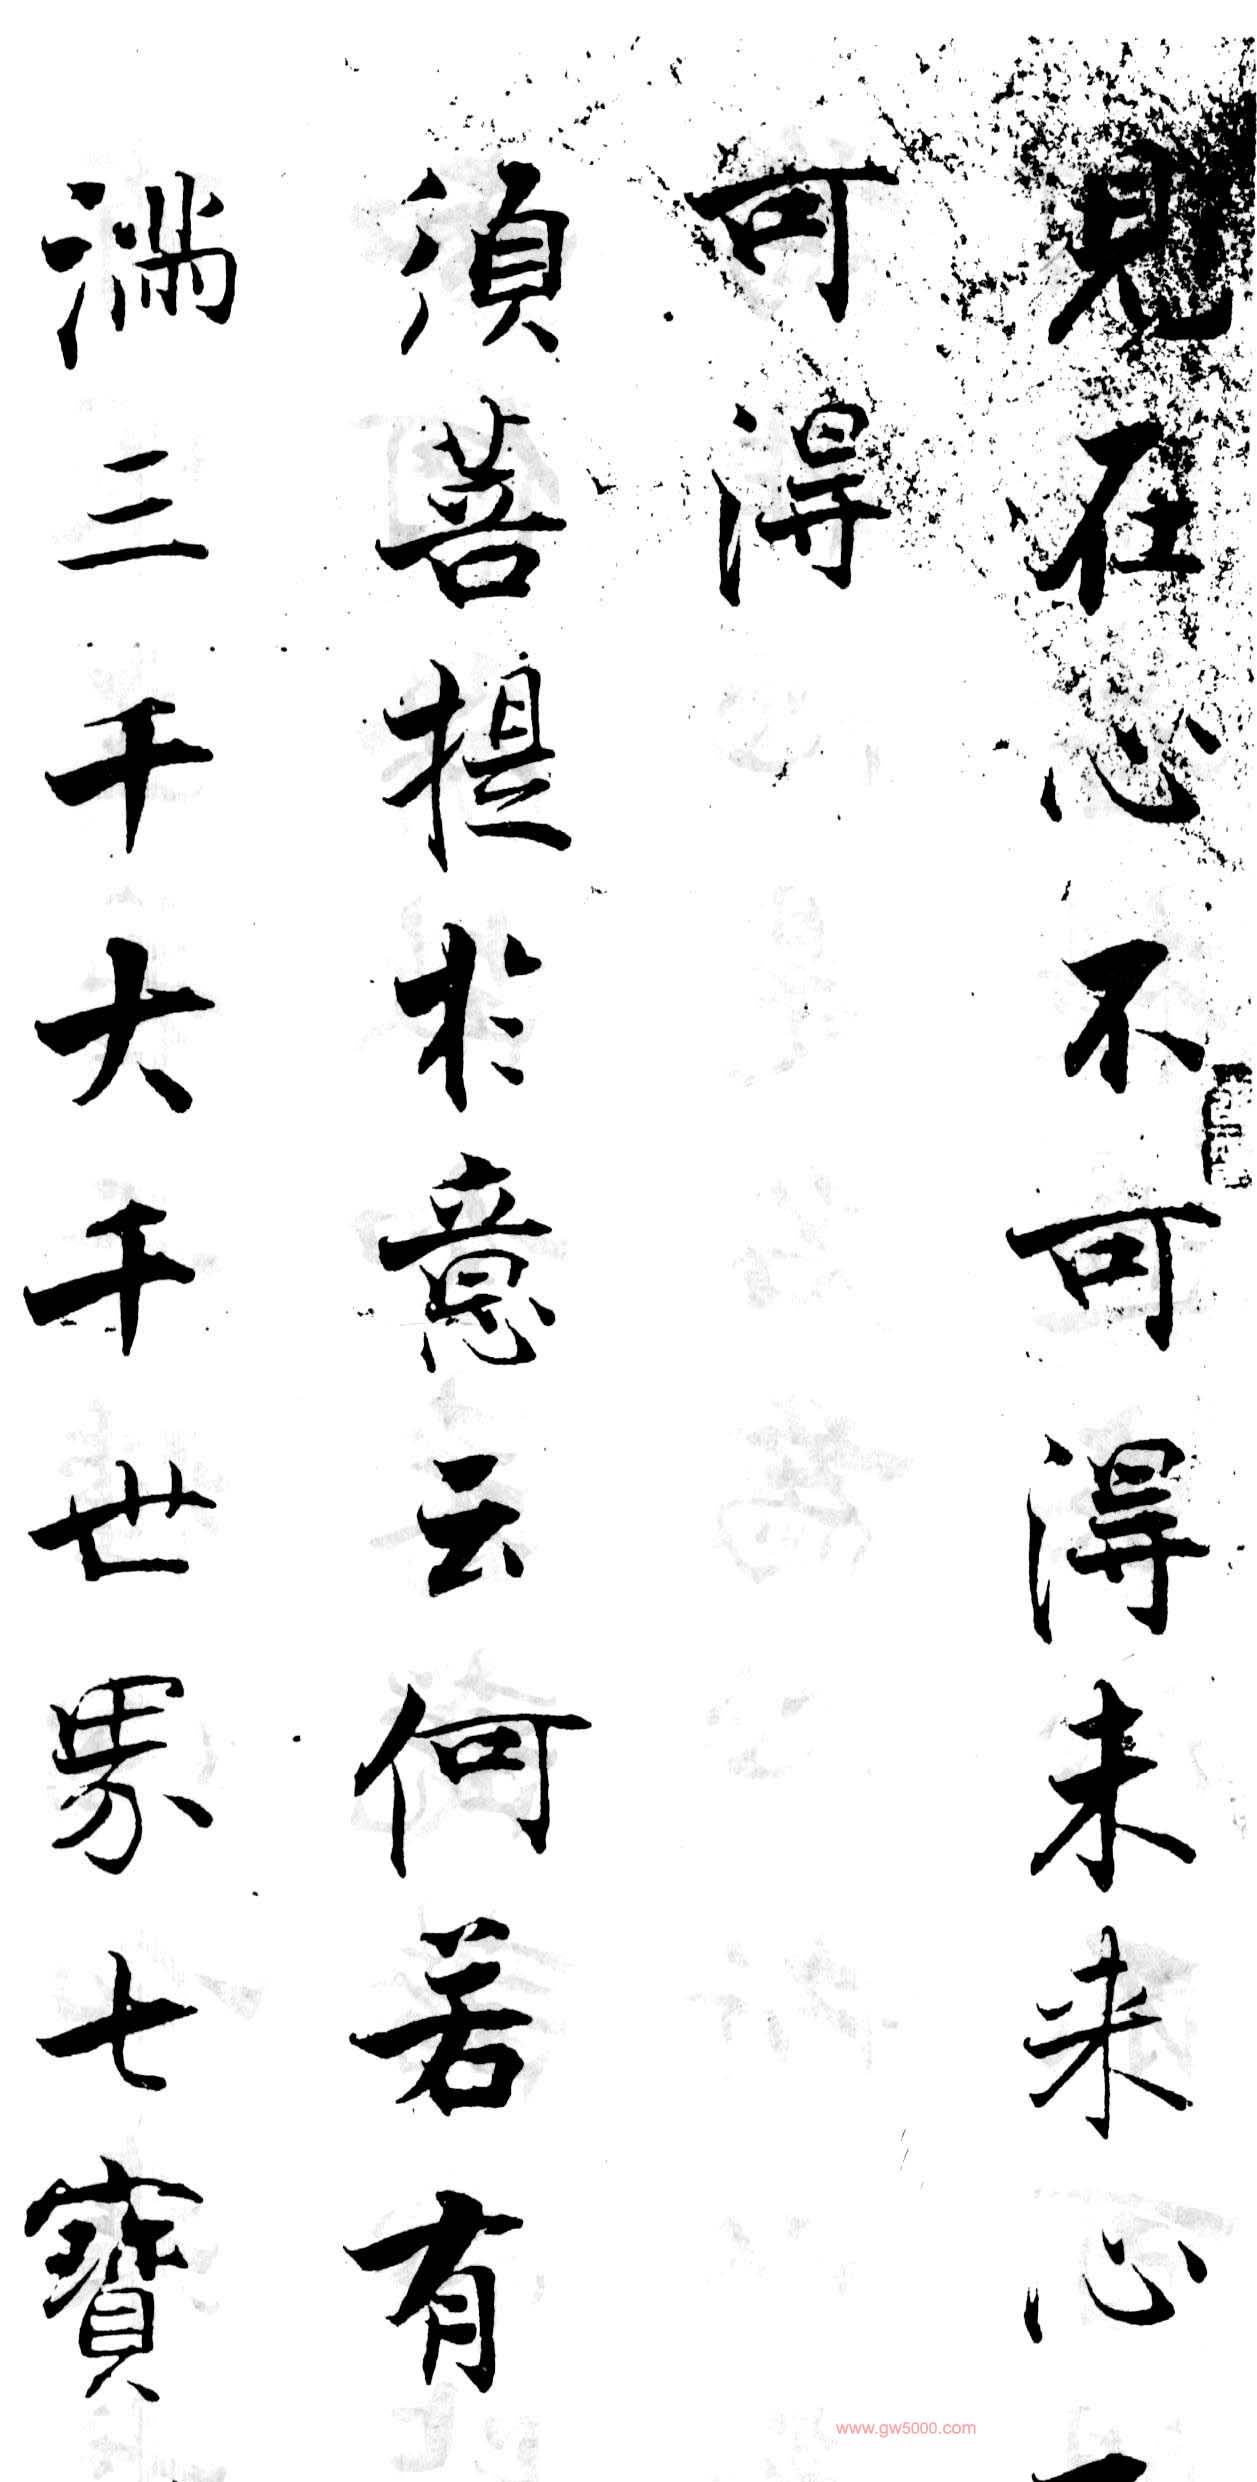 見在心不可得未来心
可得
須菩提於意云何若有
滿三千大千世界七寳
www.gw5000.com